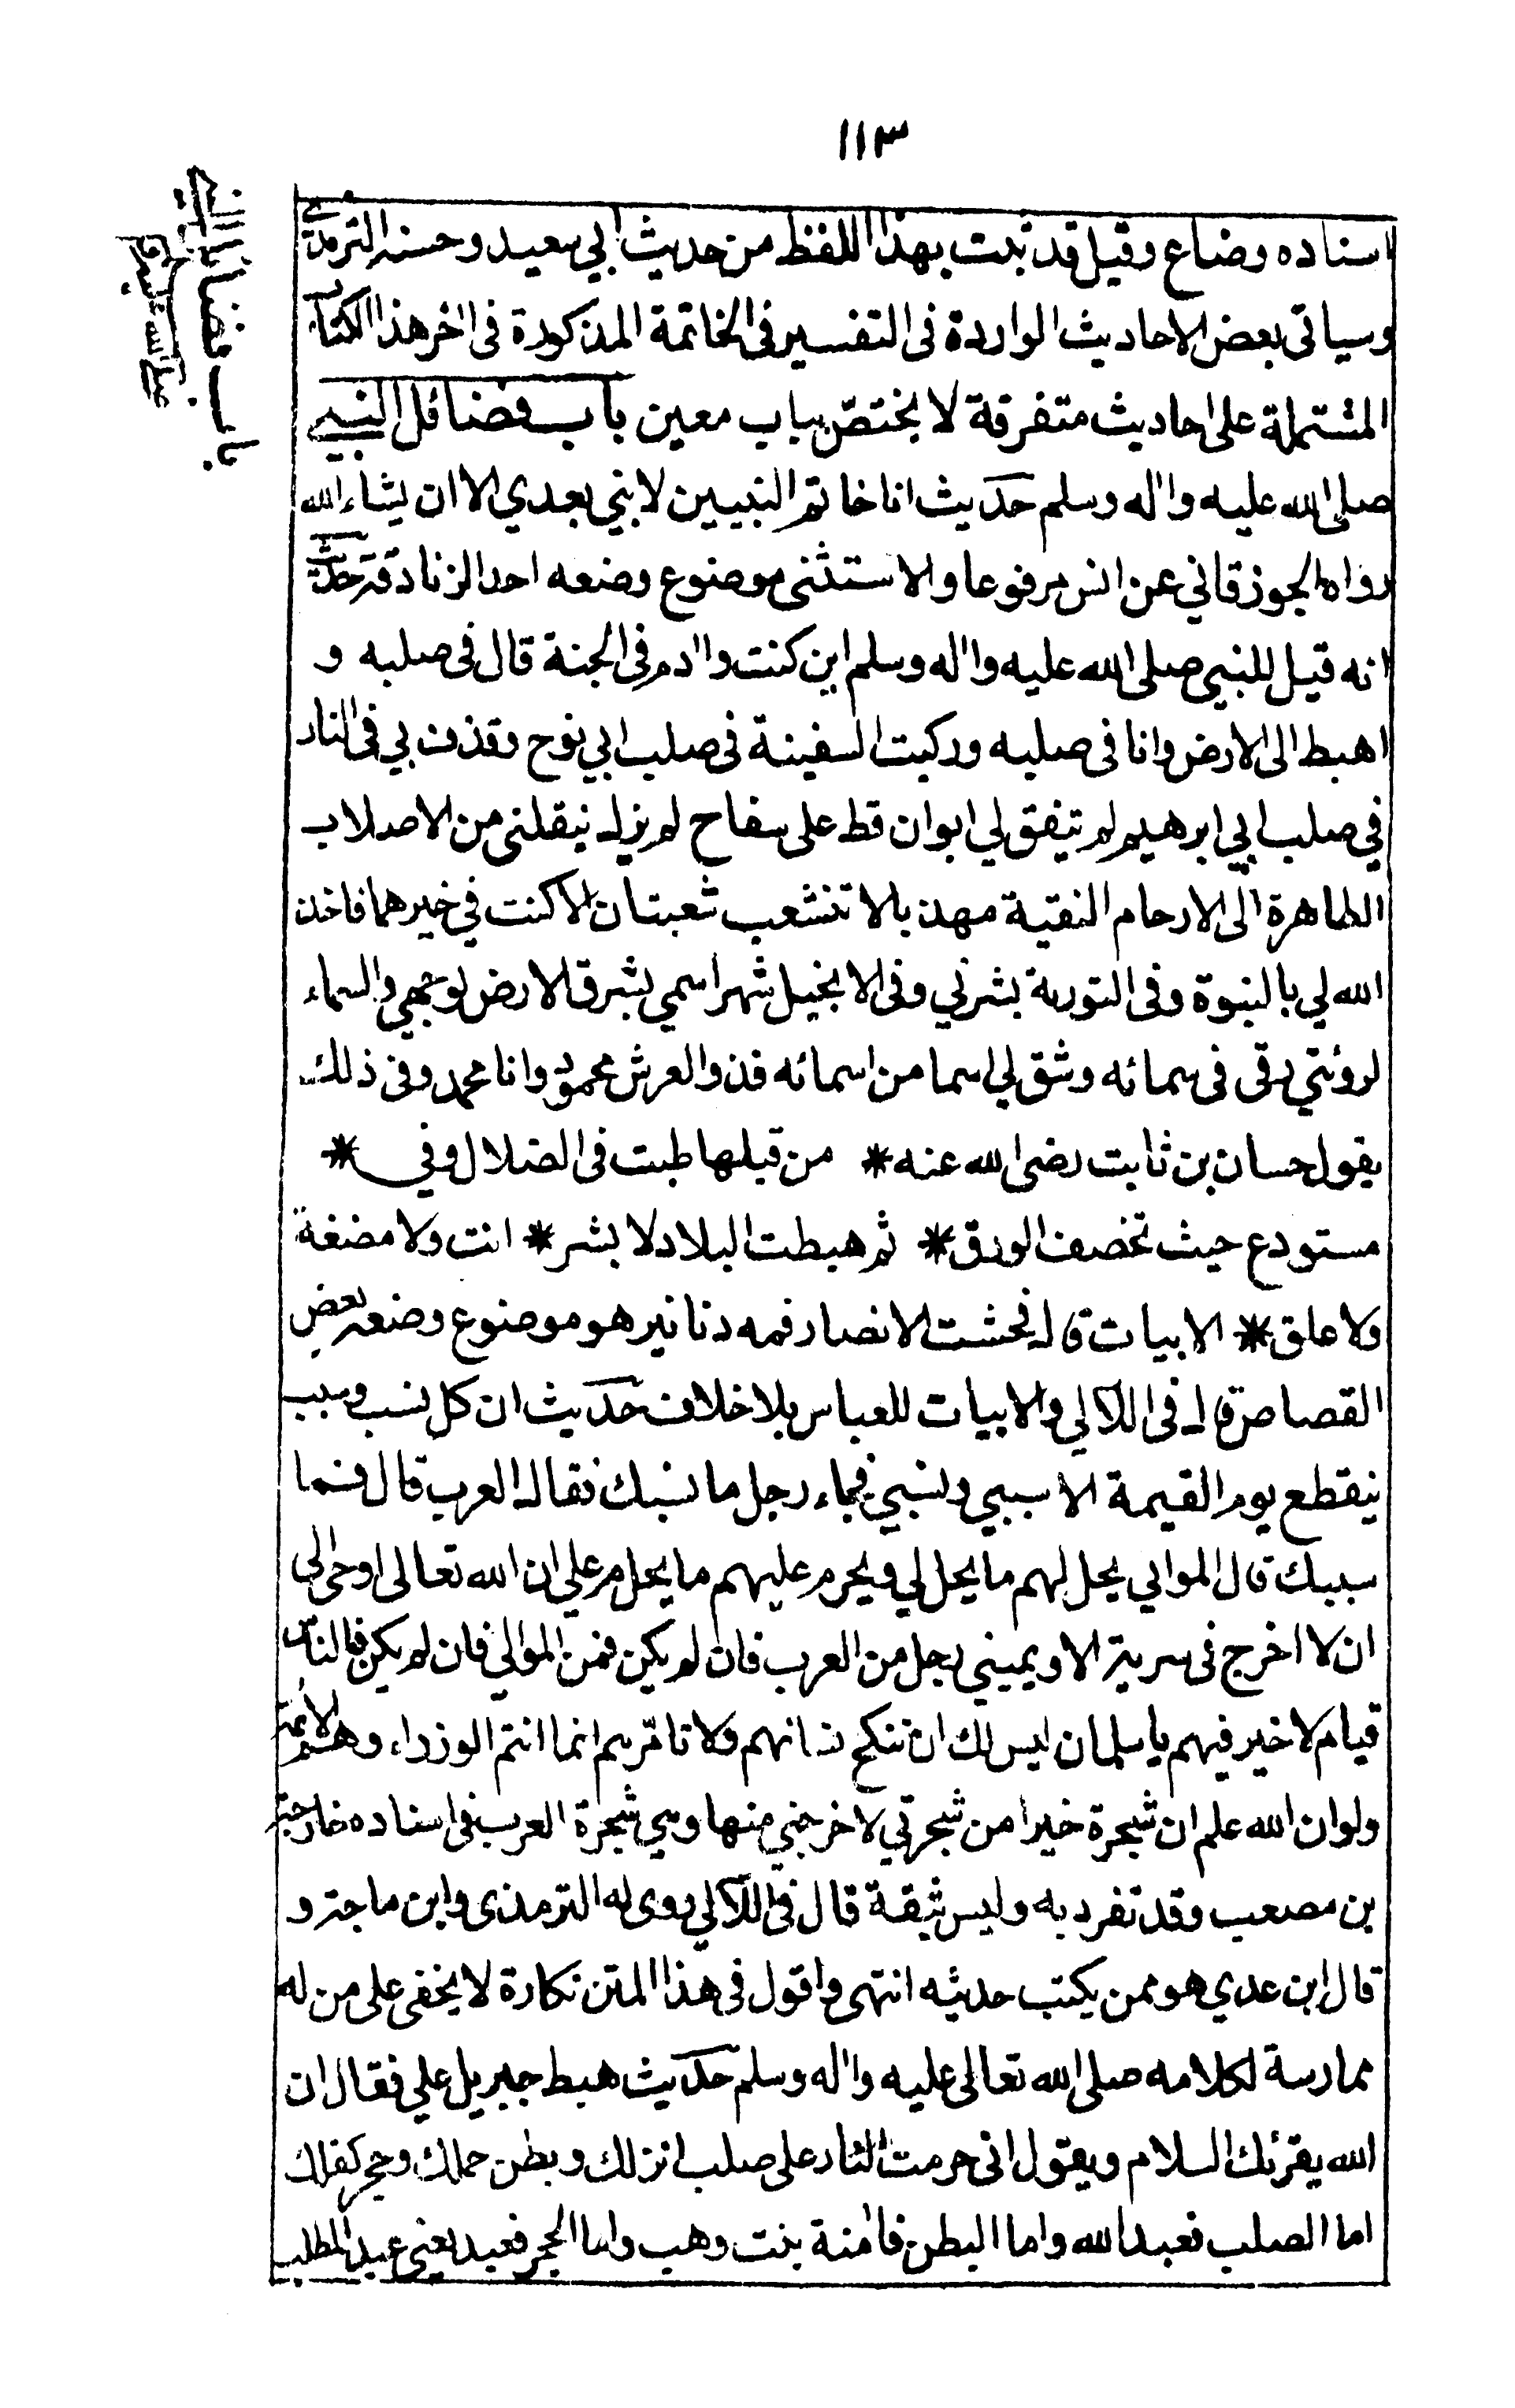 ١١٣
باب فضائل النبي
صلى الله عليه وآله وسلم
اسناده وضاع وقيل قد ثبت بهذا اللفظ من حديث ابي سعيد وحسنه الترمذي
وسياتي بعض الاحاديث الواردة فى التفسير فى الخاتمة المذكورة فى اخر هذا الكتاب
المشتملة على احاديث متفرقة لا يختصّ بباب معين باب فضائل النبي
صلى الله عليه واله وسلم حديث انا خاتم النبيين لا نبي بعدي الا ان يشاء الله
رواه الجوزقاني عن انس مرفوعا والاستثنى موضوع وضعه احد الزنادقة حديث
انه قيل للنبي صلى الله عليه واله وسلم اين كنت وادم فى الجنة قال فى صلبه و
اهبط الى الارض وانا فى صلبه وركبت السفينة فى صلب ابي نوح وقذف بي فى النار
في صلب ابي ابرهيم لم يتفق لي ابوان قط على سفاح لم يزل ينقلنى من الاصلاب
الطاهرة الى الارحام النقية مهذبا لا تنشعب شعبتان الا كنت في خيرهما فاخذ
الله لي بالنبوة وفى التورىة بشرني وفى الانجيل شهر اسمي يشرق الارض لوجهي والسماء
لرؤيتي رقى فى سمائه وشق لي اسما من اسمائه فذو العرش محمود وانا محمد وفى ذلك
يقول حسان بن ثابت رضى الله عنه * من قبلها طبت فى الضلال وفي *
مستودع حيث تخصف الورق * ثم هبطت البلاد لا بشر * انت ولا مضغة
ولا علق * الابيات قال فحشت الانصار فمه دنانير هو موضوع وضعه بعض
القصاص قال فى اللآلي والابيات للعباس بلا خلاف حديث ان كل نسب وسبب
ينقطع يوم القيمة الا سببي ونسبي فجاء رجل ما نسبك فقال العرب قال فما
سببك قال الموالي يحل لهم ما يحل لي ويحرم عليهم ما يحرم علي ان الله تعالى اوحى الي
ان لا اخرج فى سرية الا ويميني رجل من العرب فان لم يكن فمن الموالي فان لم يكن فالناس
قيام لا خير فيهم يا سلمان ليس لك ان تنكح نسائهم ولا تأمّرهم انما انتم الوزراء وهم الائمة
ولو ان الله علم ان شجرة خيرا من شجرتي لاخرجني منها وهي شجرة العرب فى اسناده خارجة
بن مصعب وقد تفرد به وليس بثقة قال فى اللآلي روى له الترمذى وابن ماجة و
قال ابن عدي هو ممن يكتب حديثه انتهى واقول فى هذا المتن نكارة لا يخفى على من له
ممارسة لكلامه صلى الله تعالى عليه واله وسلم حديث هبط جبريل علي فقال ان
الله يقرئك السلام ويقول انى حرمت النار على صلب انزلك وبطن حملك وحجر كفلك
اما الصلب فعبد الله واما البطن فآمنة بنت وهب واما الحجر فعبد يعني عبد المطلب